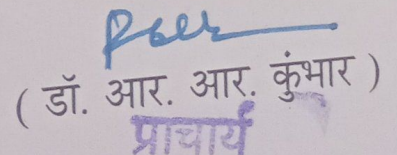 ( डॉ. आर. आर. कुंभार )
प्राचार्य